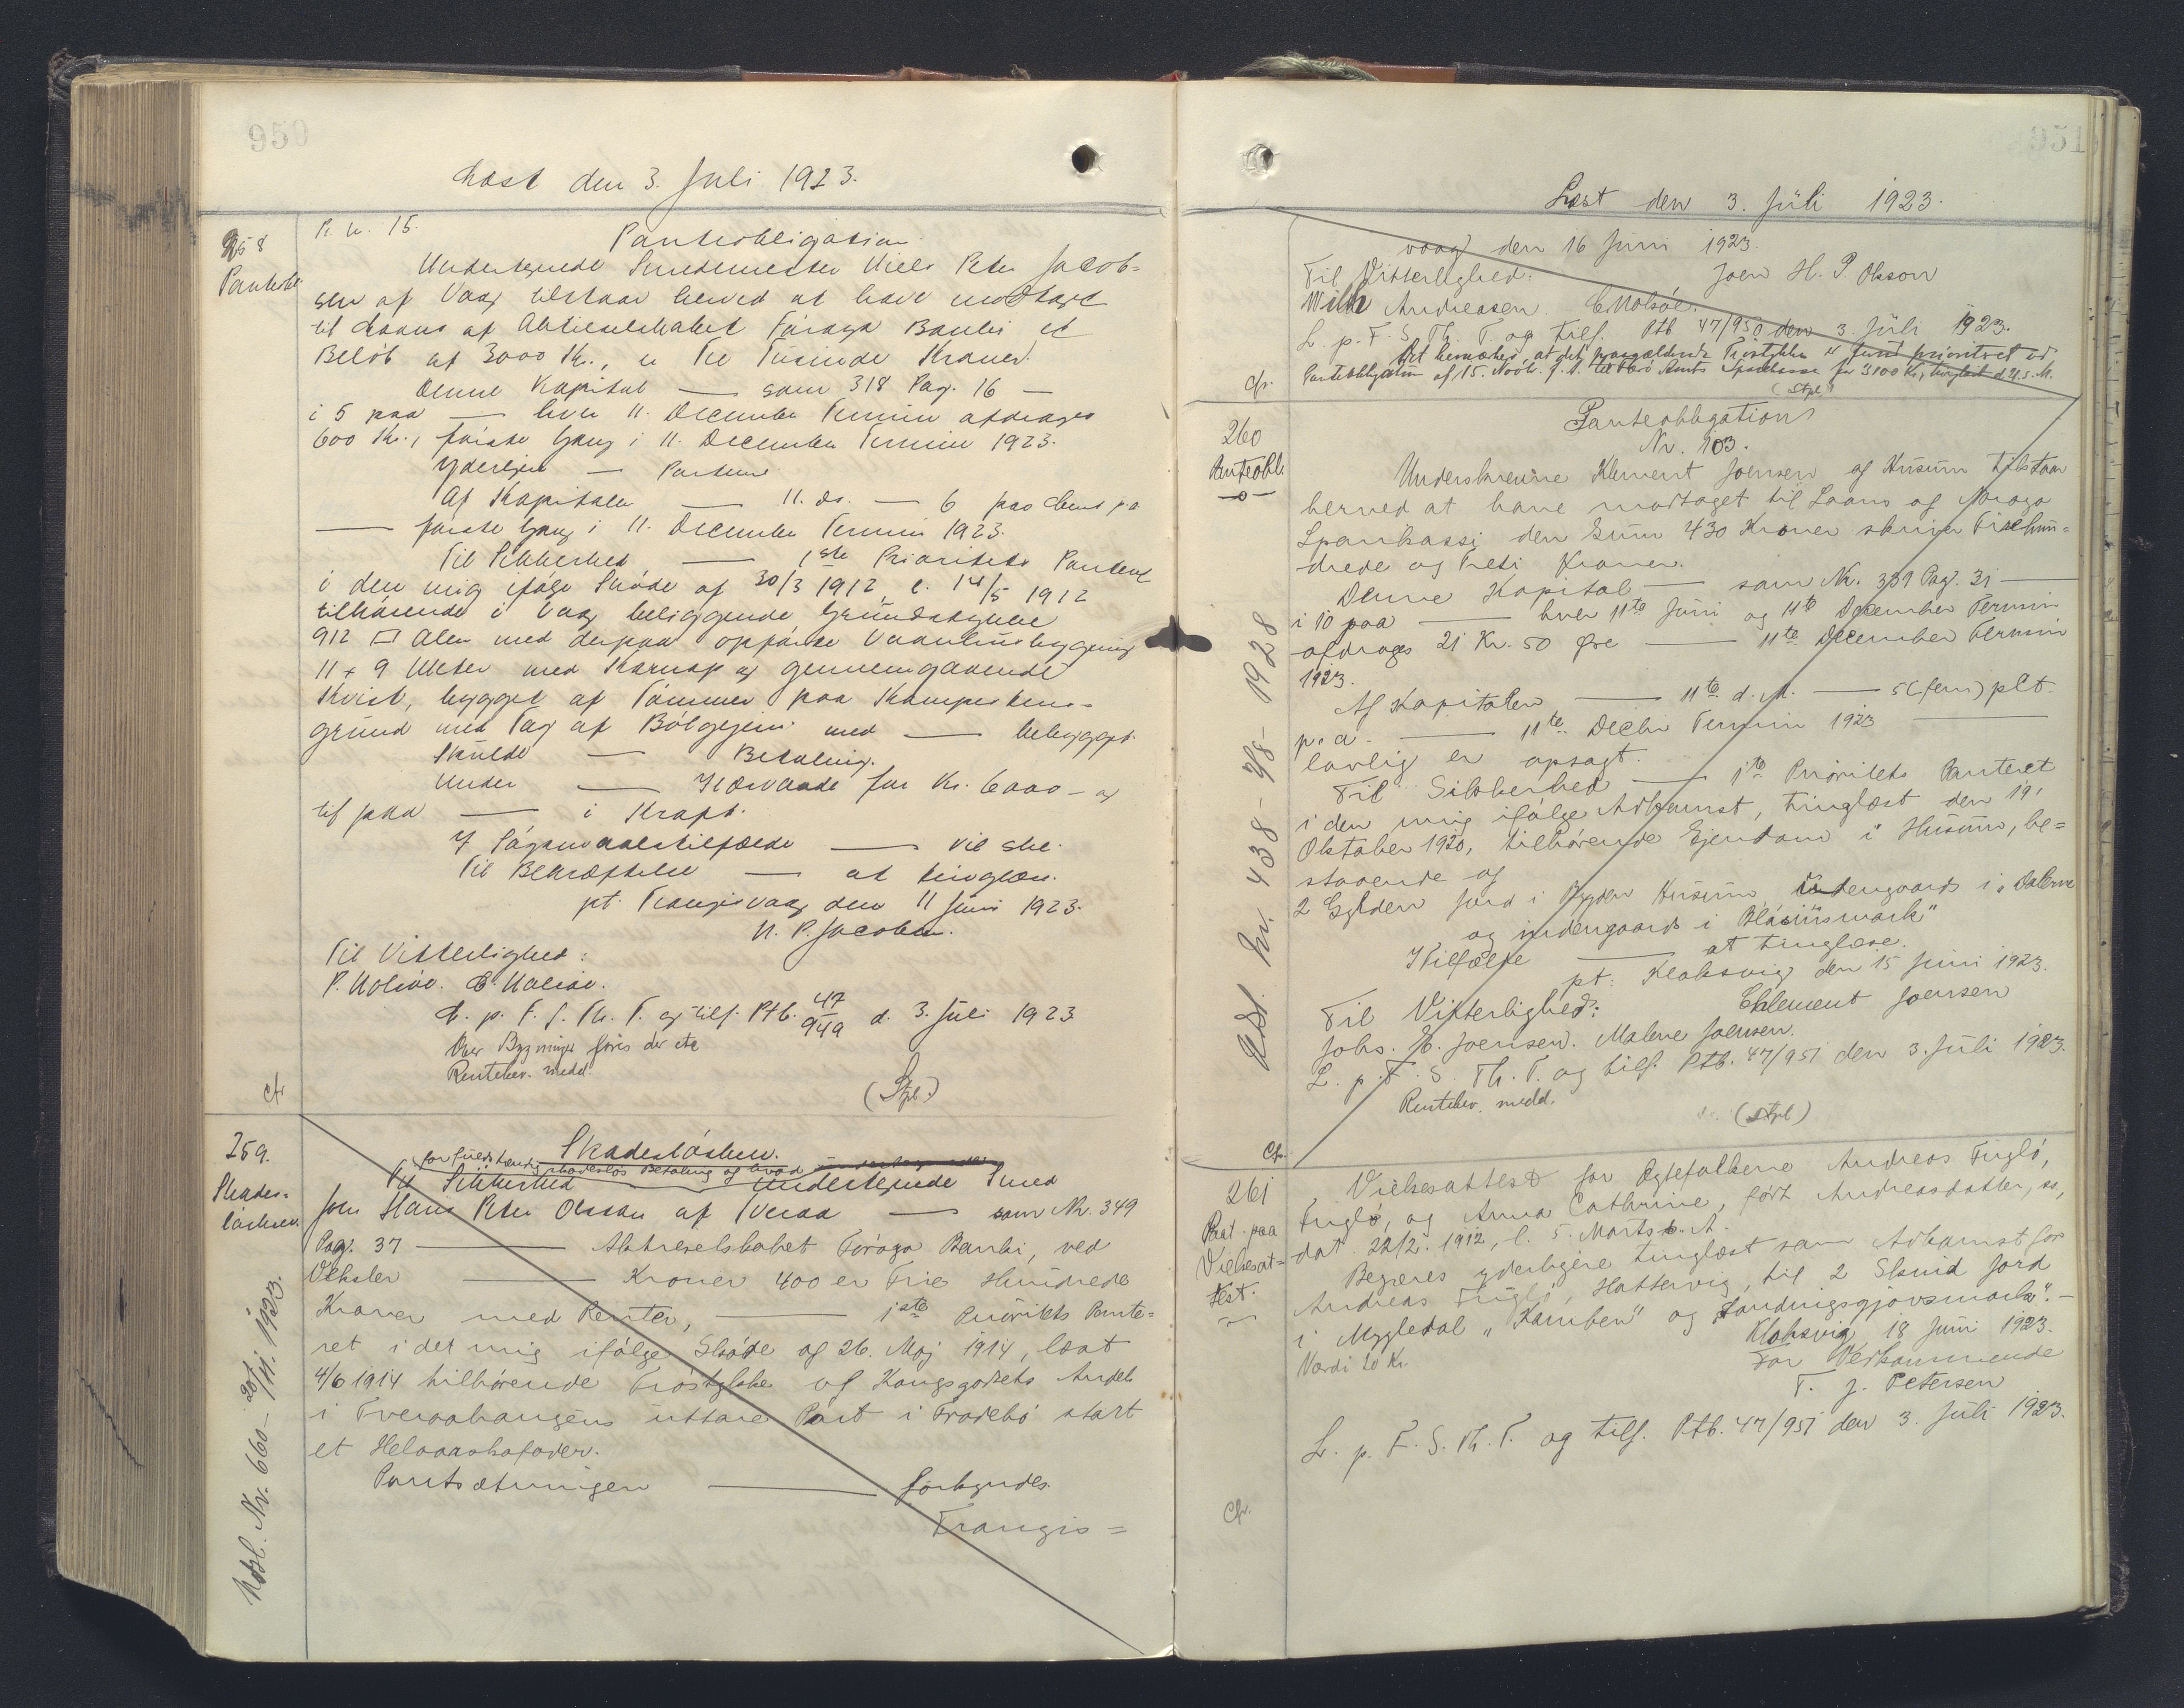 950
Læst den 3. Juli 1923.
258
Panteobl
R. N. 15.
Panteobligation
Undertegnede Smedemester Niels Peter Jacob-
sen af Vaag tilstaar herved at have modtaget
til Laans af Aktieselskabet Föroya Banki et
Belöb af 3000 Kr., er Tre Tusinde Kroner.
Denne Kapital — som 318 Pag. 16 —
i 5 paa — hver 11. December Termin afdrages
600 Kr., första Gang i 11. December Termin 1923.
Yderligere — Parterne
Af Kapitalen — 11. ds. — 6 pro Cent pa
— første Gang i 11. December Termin 1923.
Til Sikkerhed — 1ste Prioritets Panteret
i den mig ifölge Sköde af 30/3 1912, l. 14/5 1912
tilhörende i Vaag beliggende Grundstykke
912 □ Alen med derpaa opförte Vaaningsbygning
11 x 9 Meter med Karnap og gennemgaaende
Kvist, bygget af Tömmer paa Kampestens-
grund med Tag af Bölgejern med — bebygget.
Skulde — Betaling.
Under — Ildsvaade for Kr. 6000 - og
til paa — i Kraft.
I Sögsmaalstilfælde — vil ske.
Til Bekræftelse — at tinglæse.
pt. Trangisvaag den 11 Juni 1923.
N. P. Jacobsen.
Til Vitterlighed:
P. Holsöe. C. Holsöe.
L. p. F. S. Th. T. og tilf. Ptb. 47/949 d. 3. Juli 1923
Over Bygninger föres der ikke
Rentebev. medd.
(Stpl.)
cfr
259.
Skades-
löskrev.
Udsl. Nr. 660 - 20/11. 1923.
Skadesløsbrev.
for Skadeslös Betaling af hvad
Til Sikkerhed undertegnede Smed
Joen Hans Peter Olsson af Tveraa — som Nr. 349
Pag. 37 — Aktieselskabet Föroya Banki, ved
Veksler — Kroner 400 er Fire Hundrede
Kroner med Renter, — 1ste Prioritets Pante-
ret i det mig ifölge Sköde af 26. Maj 1914, læst
4/6 1914 tilhörende Tröstykke af Kongsgodsets Andel
i Tveraahaugens uttare Part i Frodebö stort
et Helaarskofoder.
Pantsætningen — forkyndes.
Trangis=
951
Læst den 3. Juli 1923.
vaag den 16 Juni 1923.
Til Vitterlighed: Joen H. P. Olsson
Milh Andreasen. C. Holsöe.
L. p. F. S. Th. T. og tilf. Ptb 47/950 den 3. Juli 1923.
Det bemærkes, at det paagældende Tröstykke er forud prioriteret ved
Panteobligation af 15. Novb. f. A. til Færö Amts Sparekasse for 3100 Kr, tinglæst d. 4. s. M.
(Stpl)
cfr.
260
Panteobl.
—o—
Udsl. Nr. 438 - 7/8 - 1928
Panteobligation
Nr. 103.
Underskrevne Klement Joensen af Husum tilstaar
herved at have modtaget til Laans af Noraya
Sparikassi den Sum 430 Kroner skriver Firehun=
drede og Treti Kroner.
Denne Kapital — som Nr. 359 Pag. 31 —
i 10 paa — hver 11te Juni og 11te December Termin
afdrages 21 Kr. 50 Øre — 11te December Termin
1923.
Af Kapitalen — 11te d. M. — 5 (fem) pCt.
p. a. — 11te Decbr Termin 1923 —
lovlig er opsagt.
Til Sikkerhed — 1te Prioritets Panteret
i den mig ifölge Adkomst, tinglæst den 19'
Oktober 1920, tilhörende Ejendom i Husum, be=
staaende af
2 Gylden Jord i Bygden Husum, udengaards i „Dalerne
og indengaards i „Blásiusmark"
I Tilfælde — at tinglæse.
pt. Klaksvig den 15 Juni 1923.
Til Vitterlighed: Chlement Joensen
Johs. H. Joensen. Malene Joensen.
L. p. F. S. Th. T. og tilf. Ptb. 47/951 den 3. Juli 1923.
Rentebev. medd.
(Stpl)
Cfr.
261
Paat. paa
Vielsesat=
test.
Vielsesattest for Ægtefolkene Andreas Fuglö,
Fuglö, og Anna Cathrine, född Andreasdatter, ss,
dat. 22/2. 1912, l. 5. Marts s. A.
Begæres yderligere tinglæst som Adkomst for
Andreas Fuglö, Hattervig, til 2 Skind Jord
i Mygledal „Kamben" og „Handrigsgjovsmark". —
Værdi 20 Kr. Klaksvig 18 Juni 1923.
For Vedkommende
T. J. Petersen
L. p. F. S. Th. T. og tilf. Ptb. 47/951 den 3. Juli 1923.
Cfr.